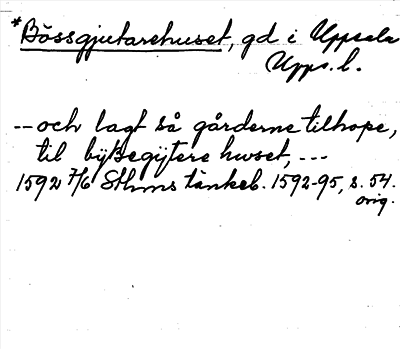 *Bössgjutarehuset, gd i Uppsala
Upps. l.
-- och lagt så gårderne tilhope,
til bÿssegÿtere huset, ---
1592 7/6 Sthms tänkeb. 1592-95, s. 54.
orig.